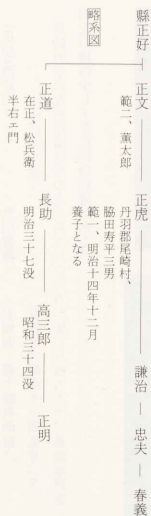 縣正好
略系図
正文
範二、薫太郎
正虎
丹羽郡尾崎村、
脇田寿平三男
範一、明治十四年十二月
養子となる
謙治
忠夫
春義
正道
在正、松兵衛
半右エ門
長助
明治三十七没
高三郎
昭和三十四没
正明